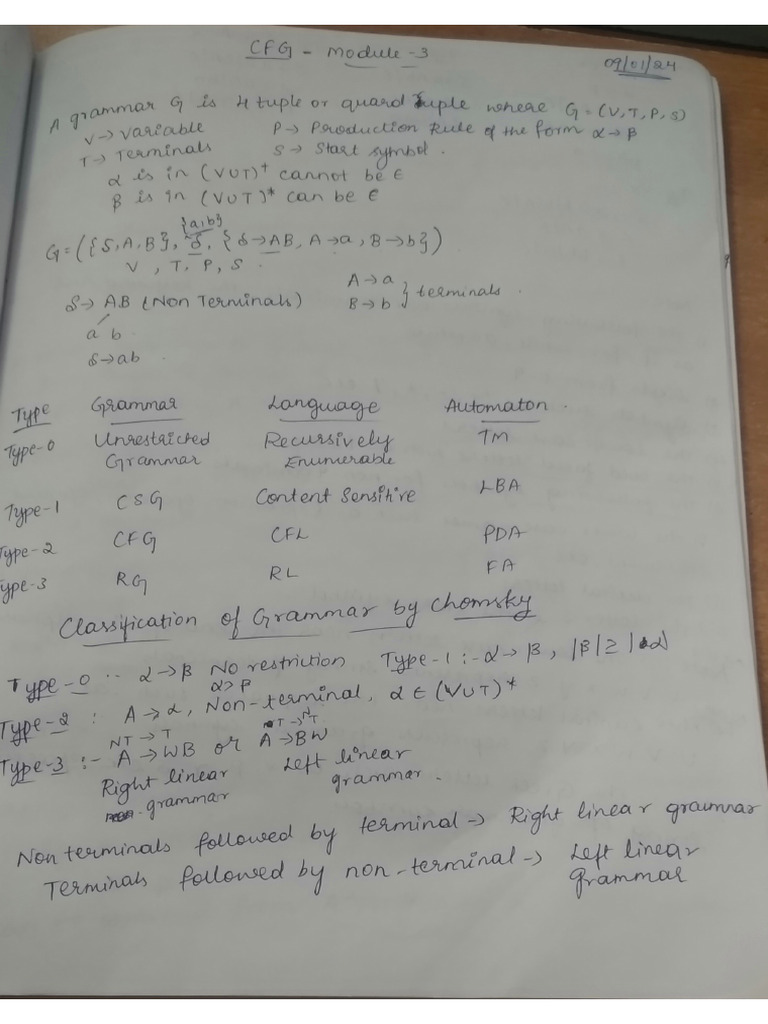 CFG - Module-3
09/01/24
A grammar G is 4 tuple or quard Tuple where G = (V, T, P, S)
V → Variable P → Production Rule of the form α → β
T → Terminals S → Start symbol.
α is in (VUT)⁺ cannot be ϵ
β is in (VUT)* can be ϵ
{a,b}
G = ({S, A, B}, S, {S → AB, A → a, B → b})
V , T, P, S.
S → AB (Non Terminals) A → a
B → b } terminals.
a b
S → ab
Type Grammar Language Automaton.
Type-0 Unrestricted Grammar Recursively Enumerable TM
Type-1 CSG Content Sensitive LBA
Type-2 CFG CFL PDA
Type-3 RG RL FA
Classification of Grammar by Chomsky
Type-0 :- α → β No restriction Type-1 :- α → β, |β| ≥ |α|
α > β
Type-2 : A → α, Non-terminal, α ∈ (VUT)*
NT → T T → NT
Type-3 :- A → WB or A → BW
Right linear grammar Left linear grammar.
Non terminals followed by terminal → Right linear grammar
Terminals followed by non-terminal → Left linear grammar